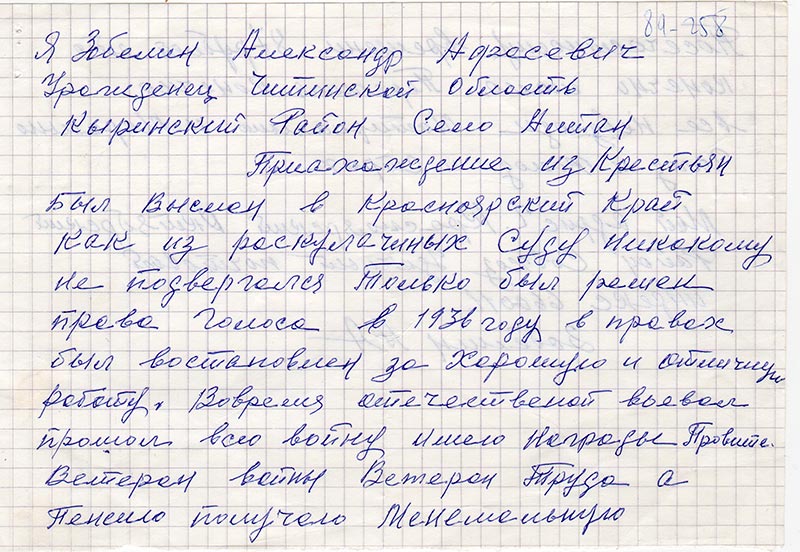 84-258
Я Зобелин Александр Афосевич
Урожденец Читинской область
Кыринский Район Село Алтан
Приахождение из Крестьян
был выслен в Красноярский Край
как из роскулачиных Суду никокому
не подвергался только был решен
права Голоса в 1936 году в правах
был востоновлен за хорошую и отличную
работу. Вовремя отечественой ваевал
прошол всю войну имею Награды Провите.
Ветеран войны Ветеран Труда а
Пенсию получаю Менемольную